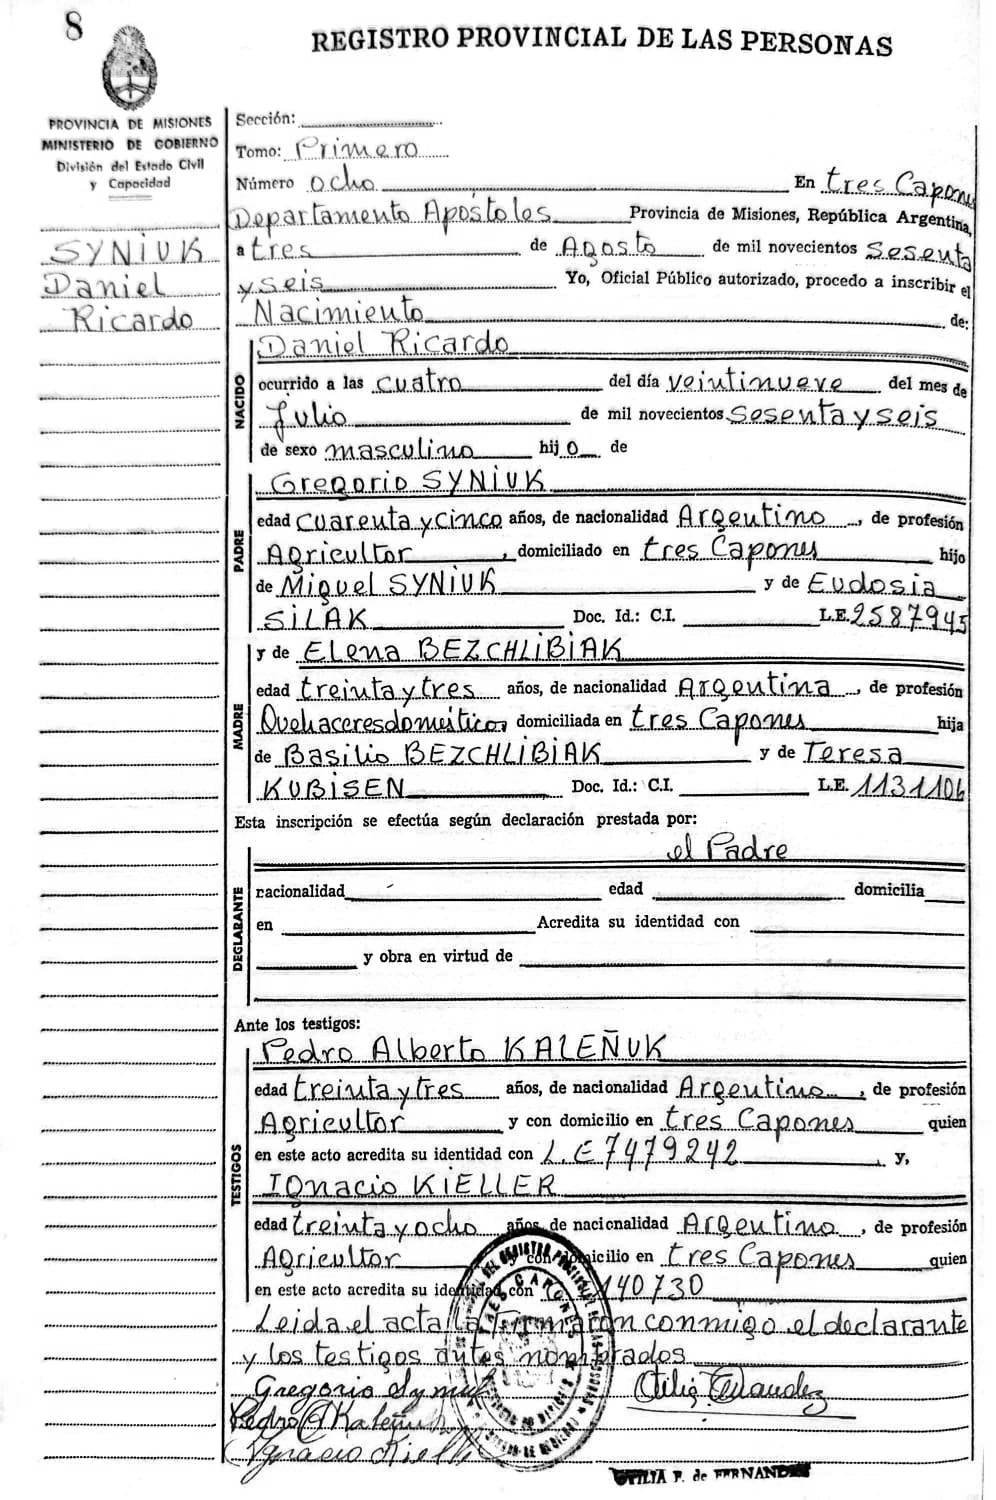 8
REGISTRO PROVINCIAL DE LAS PERSONAS
PROVINCIA DE MISIONES
MINISTERIO DE GOBIERNO
División del Estado Civil
y Capacidad
SYNIUK
Daniel
Ricardo
Sección:
Tomo: Primero
Número ocho En tres Capones
Departamento Apóstoles Provincia de Misiones, República Argentina,
a tres de Agosto de mil novecientos Sesenta
y seis Yo, Oficial Público autorizado, procedo a inscribir el
Nacimiento de:
NACIDO
Daniel Ricardo
ocurrido a las cuatro del día veintinueve del mes de
Julio de mil novecientos Sesenta y seis
de sexo masculino hijo de
PADRE
Gregorio SYNIUK
edad cuarenta y cinco años, de nacionalidad Argentino, de profesión
Agricultor, domiciliado en tres Capones hijo
de Miguel SYNIUK y de Eudosia
SILAK Doc. Id.: C.I. L.E. 2587945
MADRE
y de Elena BEZCHLIBIAK
edad treinta y tres años, de nacionalidad Argentina, de profesión
Quehaceres domésticos domiciliada en tres Capones hija
de Basilio BEZCHLIBIAK y de Teresa
KUBISEN Doc. Id.: C.I. L.E. 1131106
Esta inscripción se efectúa según declaración prestada por:
DECLARANTE
el Padre
nacionalidad edad domicilia
en Acredita su identidad con
y obra en virtud de
Ante los testigos:
TESTIGOS
Pedro Alberto KALEÑUK
edad treinta y tres años, de nacionalidad Argentino, de profesión
Agricultor y con domicilio en tres Capones quien
en este acto acredita su identidad con L.E 7479242 y,
Ignacio KIELLER
edad treinta y ocho años, de nacionalidad Argentino, de profesión
Agricultor y con domicilio en tres Capones quien
en este acto acredita su identidad con 140730
Leida el acta la Firmaron conmigo el declarante
y los testigos antes nombrados
Gregorio
Pedro A Kaleñuk
Ignacio Kieller
TRES CAPONES
OTILIA F. de FERNANDEZ